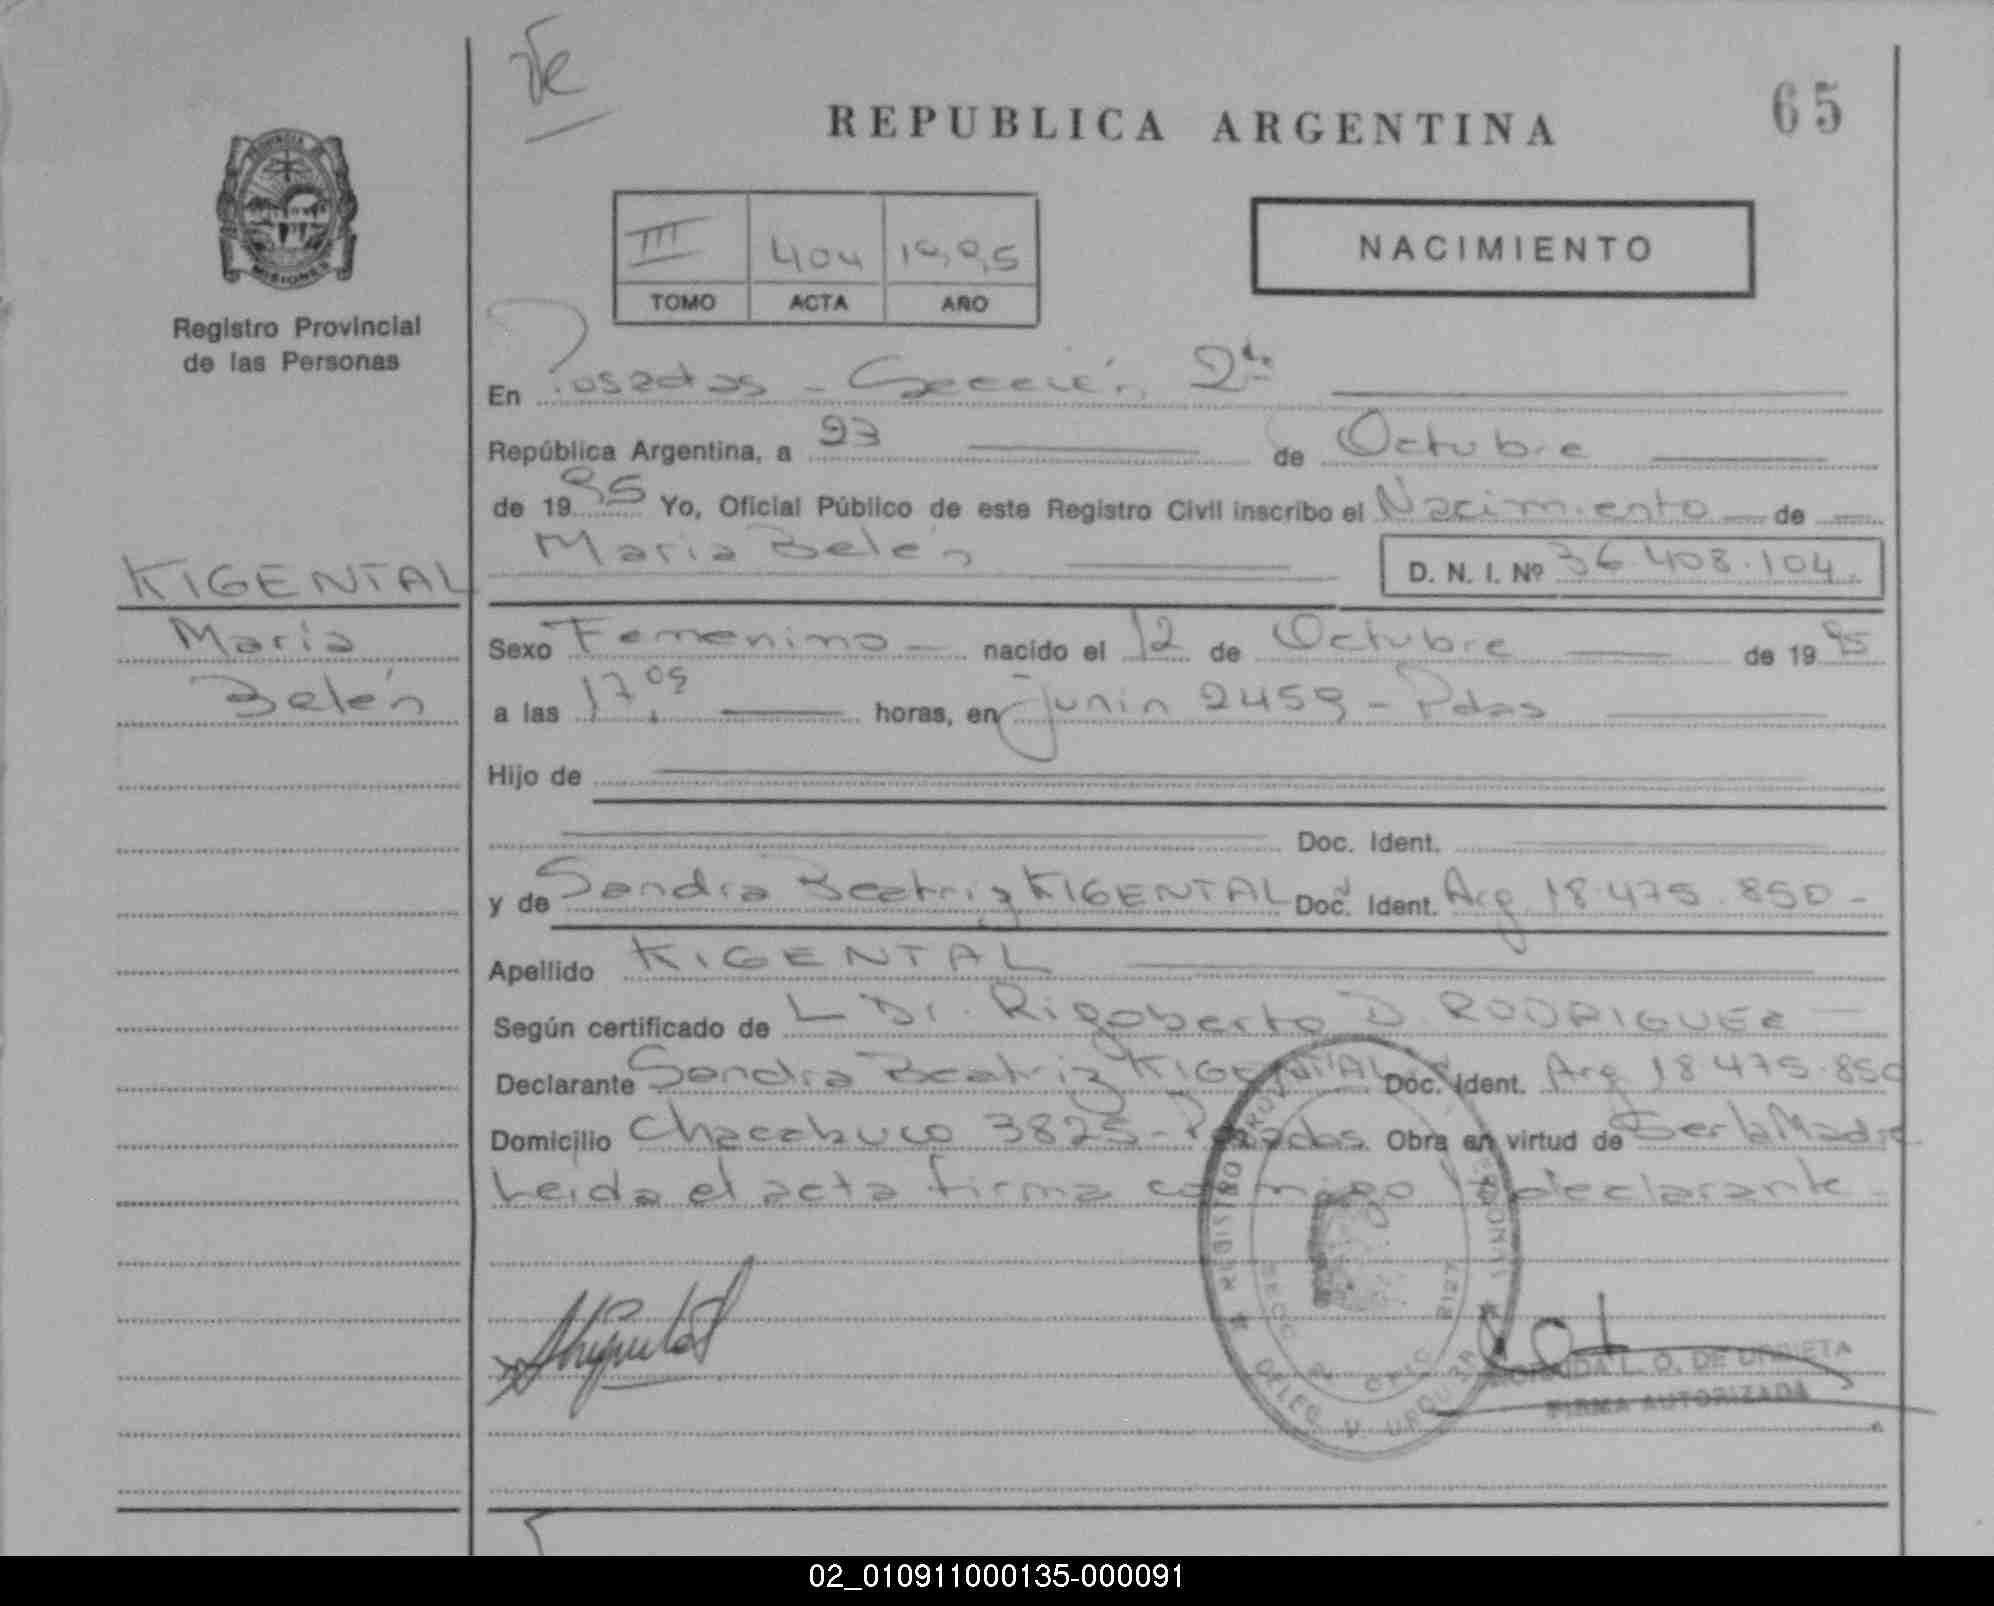 REPUBLICA ARGENTINA
65
NACIMIENTO
III 404 1995
TOMO ACTA AÑO
PROVINCIA
MISIONES
Registro Provincial
de las Personas
En Posadas - Sección 2da
República Argentina, a 23 de Octubre
de 1995 Yo, Oficial Público de este Registro Civil inscribo el Nacimiento de
María Belén D. N. I. Nº 36.408.104.
KIGENTAL
María
Belén
Sexo Femenino nacido el 12 de Octubre de 1995
a las 17,05 horas, en Junin 2459 - Pdas
Hijo de
Doc. Ident.
y de Sandra Beatriz KIGENTAL Doc. Ident. Arg 18.475.850 -
Apellido KIGENTAL
Según certificado de L Dr. Rigoberto D. RODRIGUEZ
Declarante Sandra Beatriz KIGENTAL Doc. Ident. Arg 18.475.850
Domicilio Chacabuco 3825 - Posadas Obra en virtud de Ser la Madre
Leida el acta firma conmigo declarante
REGISTRO
DELEG V. URQUIZA
L. O. DE URRIETA
FIRMA AUTORIZADA
02_010911000135-000091